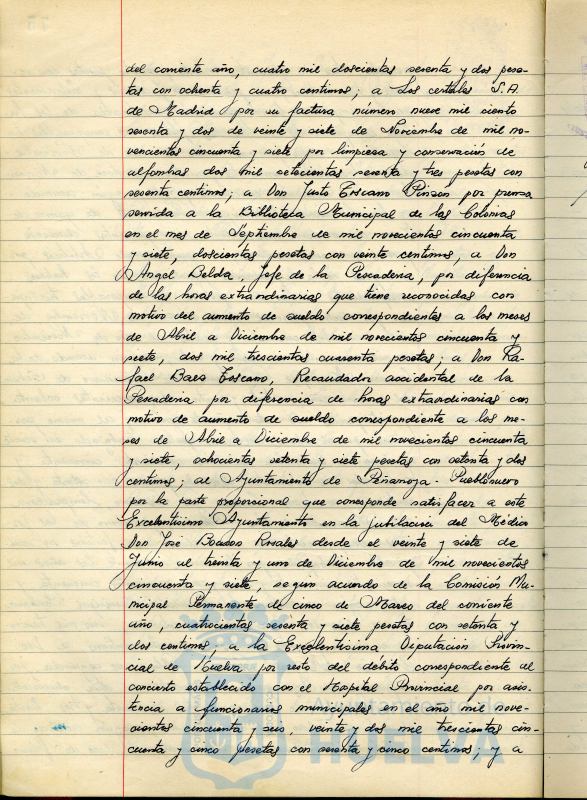 del corriente año, cuatro mil doscientas sesenta y dos pese-
tas con ochenta y cuatro centimos; a Los certales S.A.
de Madrid por su factura número nueve mil ciento
sesenta y dos de veinte y siete de Noviembre de mil no-
vencientos cincuenta y siete por limpieza y conservación de
alfombras dos mil setecientas sesenta y tres pesetas con
sesenta centimos; a Don Justo Toscano Pinzon por prensa
servida a la Biblioteca Municipal de las Colonias
en el mes de Septiembre de mil novecientos cincuenta
y siete, doscientas pesetas con veinte centimos, a Don
Angel Belda, Jefe de la Pescaderia, por diferencia
de las horas extraordinarias que tiene reconocidas con
motivo del aumento de sueldo correspondientes a los meses
de Abril a Diciembre de mil novecientos cincuenta y
siete, dos mil trescientas cuarenta pesetas; a Don Ra-
fael Baes Toscano, Recaudador accidental de la
Pescaderia por diferencia de horas extraordinarias con
motivo de aumento de sueldo correspondiente a los me-
ses de Abril a Diciembre de mil novecientos cincuenta
y siete, ochocientas setenta y siete pesetas con setenta y dos
centimos; al Ayuntamiento de Peñarroya-Pueblonuevo
por la parte proporcional que corresponde satisfacer a este
Excelentisimo Ayuntamiento en la jubilación del Médico
Don José Rosales desde el veinte y siete de
Junio al treinta y uno de Diciembre de mil novecientos
cincuenta y siete, según acuerdo de la Comisión Mu-
nicipal Permanente de cinco de Marzo del corriente
año, cuatrocientas sesenta y siete pesetas con setenta y
dos centimos; a la Excelentisima Diputación Provin-
cial de Huelva por resto del débito correspondiente al
concierto establecido con el Hospital Provincial por asis-
tencia a funcionarios municipales en el año mil nove-
cientos cincuenta y seis, veinte y dos mil trescientas cin-
cuenta y cinco pesetas con sesenta y cinco centimos; y a
HUELVA